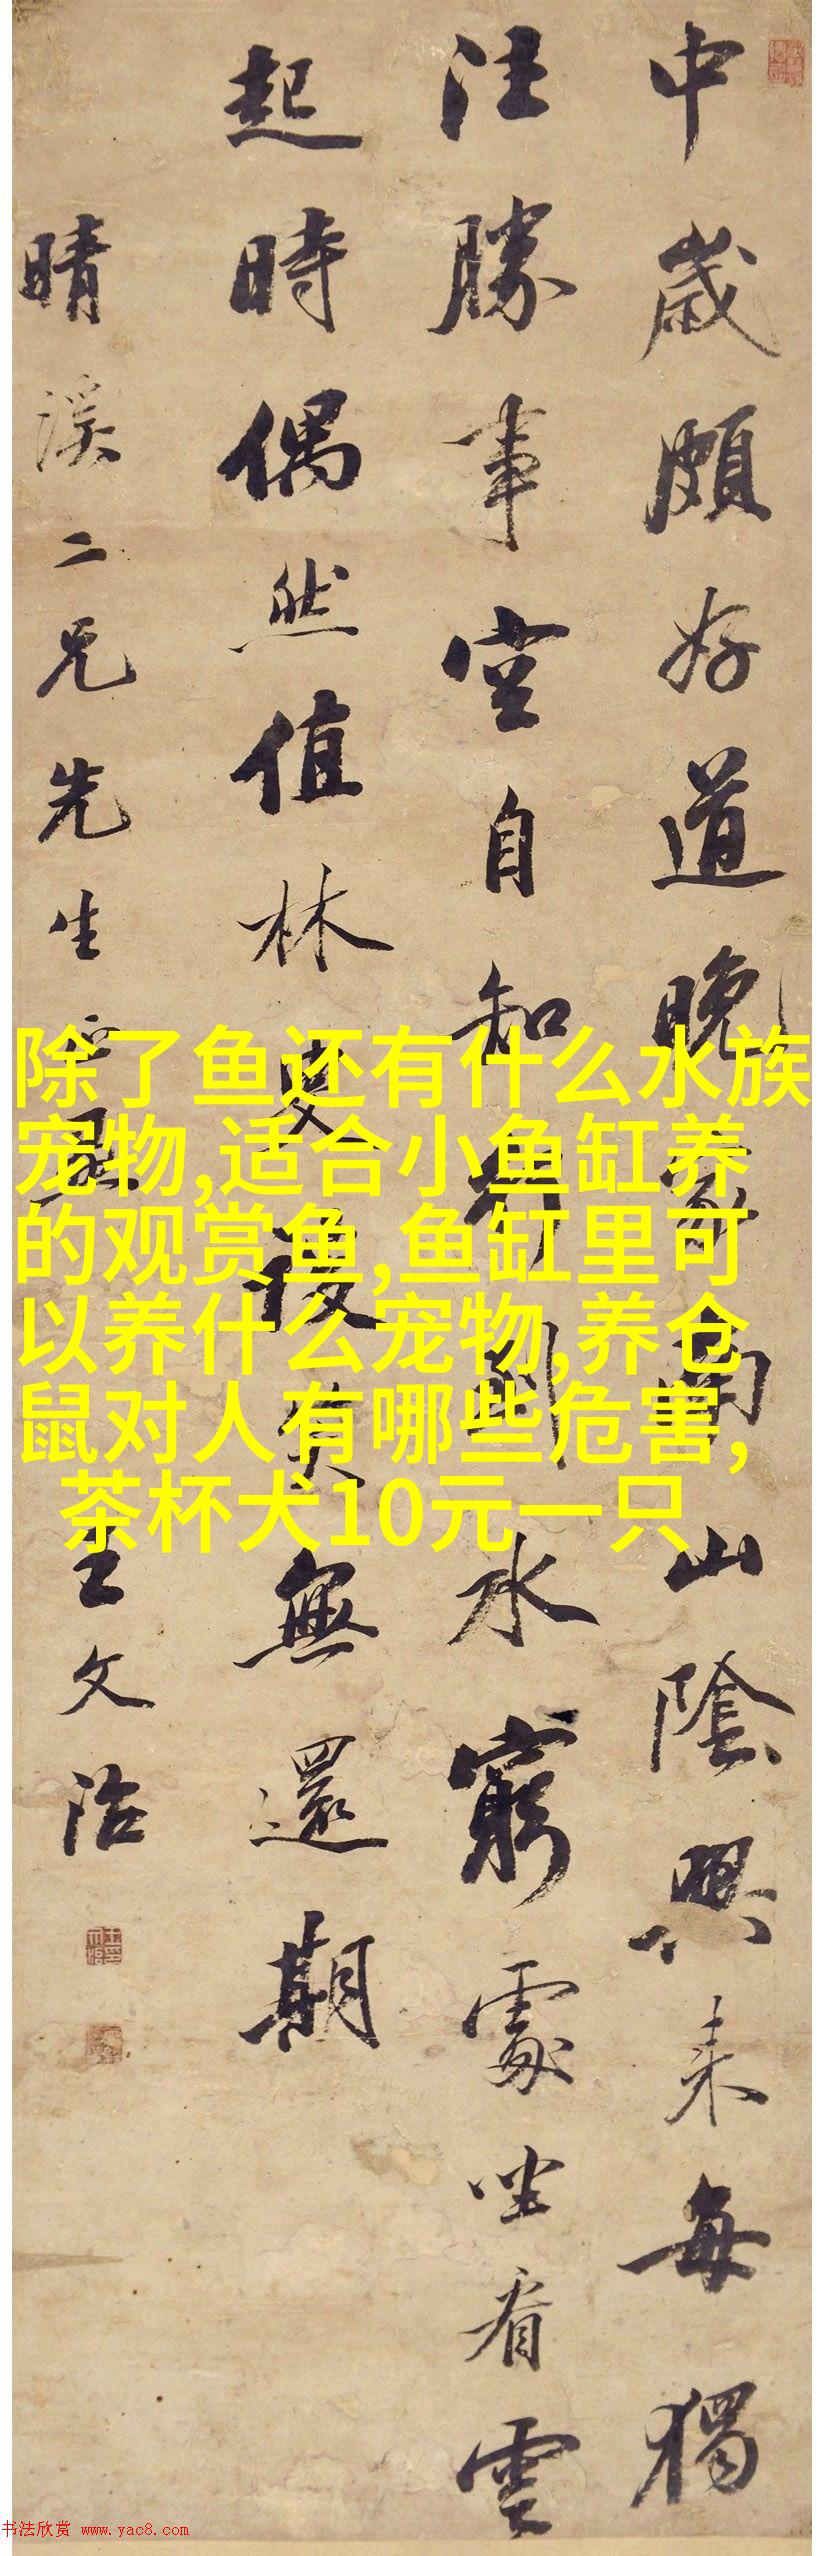 中歲頗好道晚家南山陰興來每獨
往勝事空自知行到水窮處坐看雲
起時偶然值林叟笑無還期
晴溪二兄先生王文治
除了鱼还有什么水族
宠物,适合小鱼缸养
的观赏鱼,鱼缸里可
以养什么宠物,养仓
鼠对人有哪些危害,
茶杯犬10元一只
书法欣赏 www.yac8.com